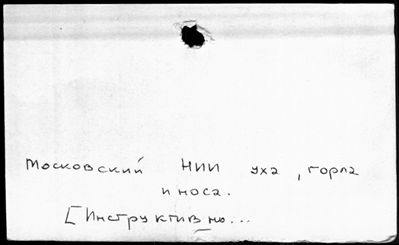 Московский НИИ уха, горла
и носа.
[Инструктивно...